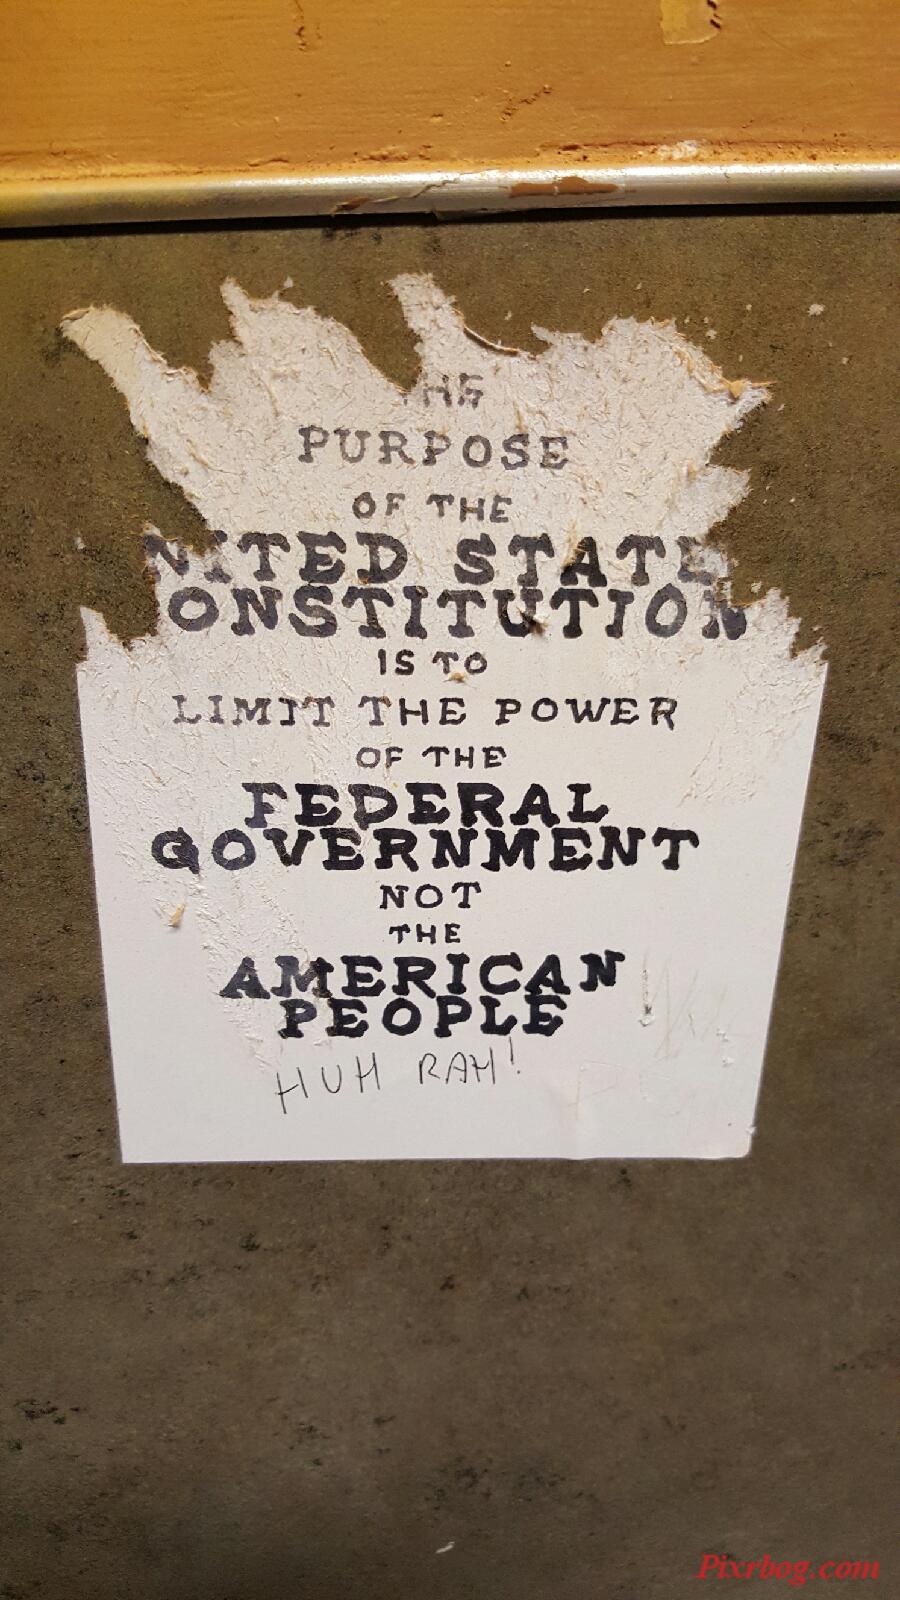 THE
PURPOSE
OF THE
NITED STATE
ONSTITUTION
IS TO
LIMIT THE POWER
OF THE
FEDERAL
GOVERNMENT
NOT
THE
AMERICAN
PEOPLE
HUH RAH!
Pixrbog.com